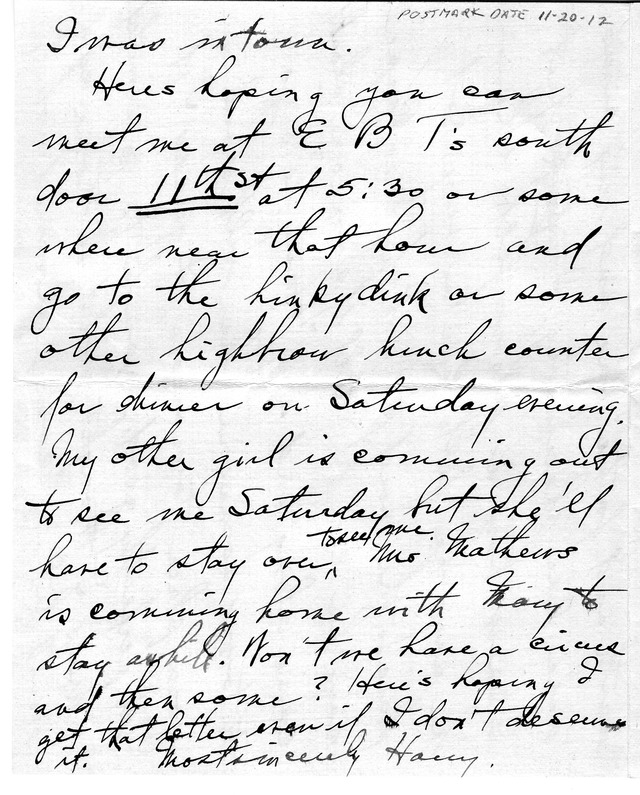 POSTMARK DATE 11-20-12
I was in town.
Heres hoping you can
meet me at E B T's south
door 11th st at 5:30 or some
where near that hour and
go to the hinkydink or some
other highbrow lunch counter
for dinner on Saturday evening.
My other girl is comming out
to see me Saturday but she'll
have to stay over to see me. Mrs Mathews
is comming home with Mary to
stay awhile. Won't we have a circus
and then some? Here's hoping I
get that letter even if I don't deserve
it. Most sincerely Harry.